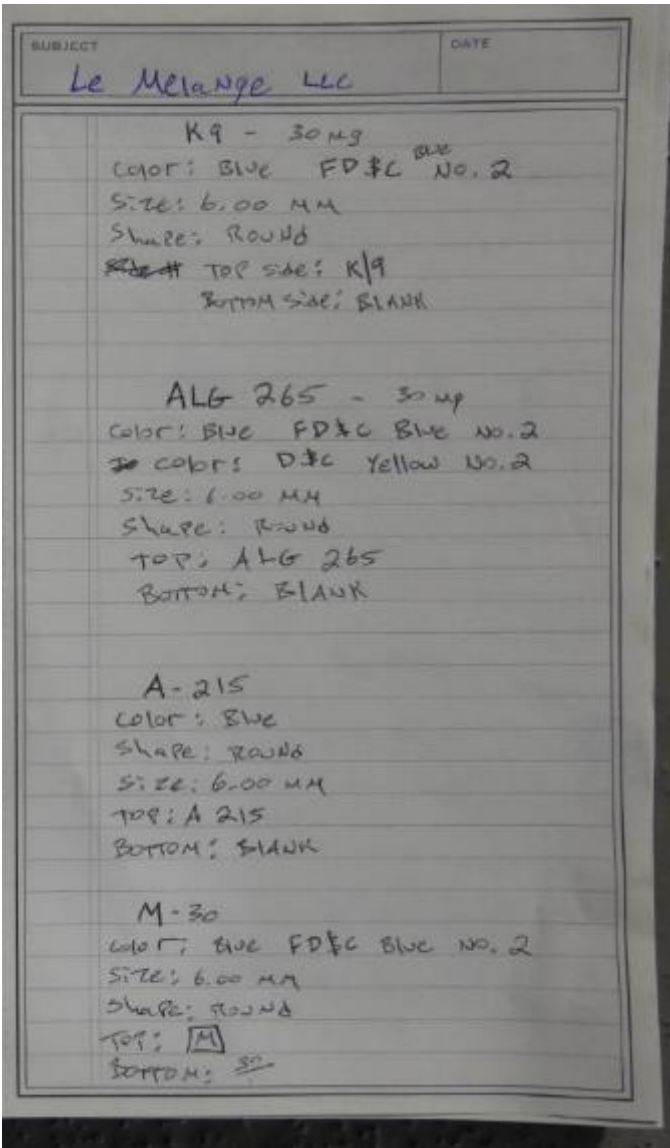 SUBJECT
DATE
Le Melange LLC
K9 - 30 mg
Color: Blue FD&C Blue No. 2
Size: 6.00 MM
Shape: Round
Top side: K/9
Bottom side: BLANK
ALG 265 - 30 mg
Color: Blue FD&C Blue No. 2
Color: D&C Yellow No. 2
Size: 6.00 MM
Shape: Round
TOP: ALG 265
BOTTOM: BLANK
A-215
Color: Blue
Shape: Round
Size: 6.00 MM
TOP: A 215
BOTTOM: BLANK
M-30
Color: Blue FD&C Blue No. 2
Size: 6.00 MM
Shape: Round
TOP: M
BOTTOM: 30